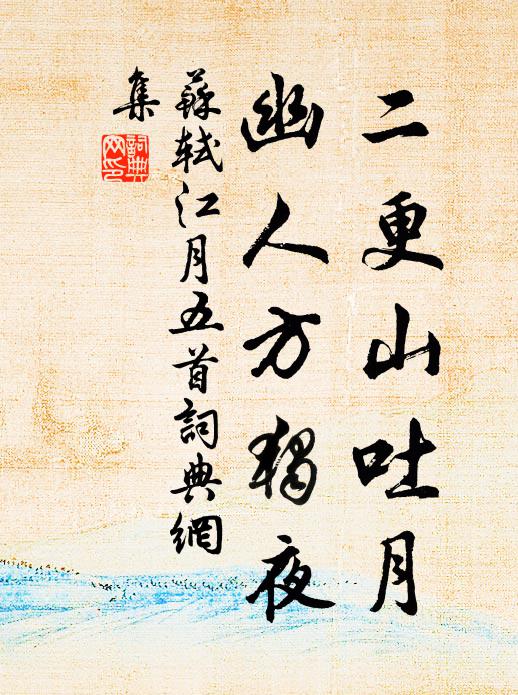 二更山吐月
幽人方獨夜
蘇軾江月五首詞典網
集
詞典
網印